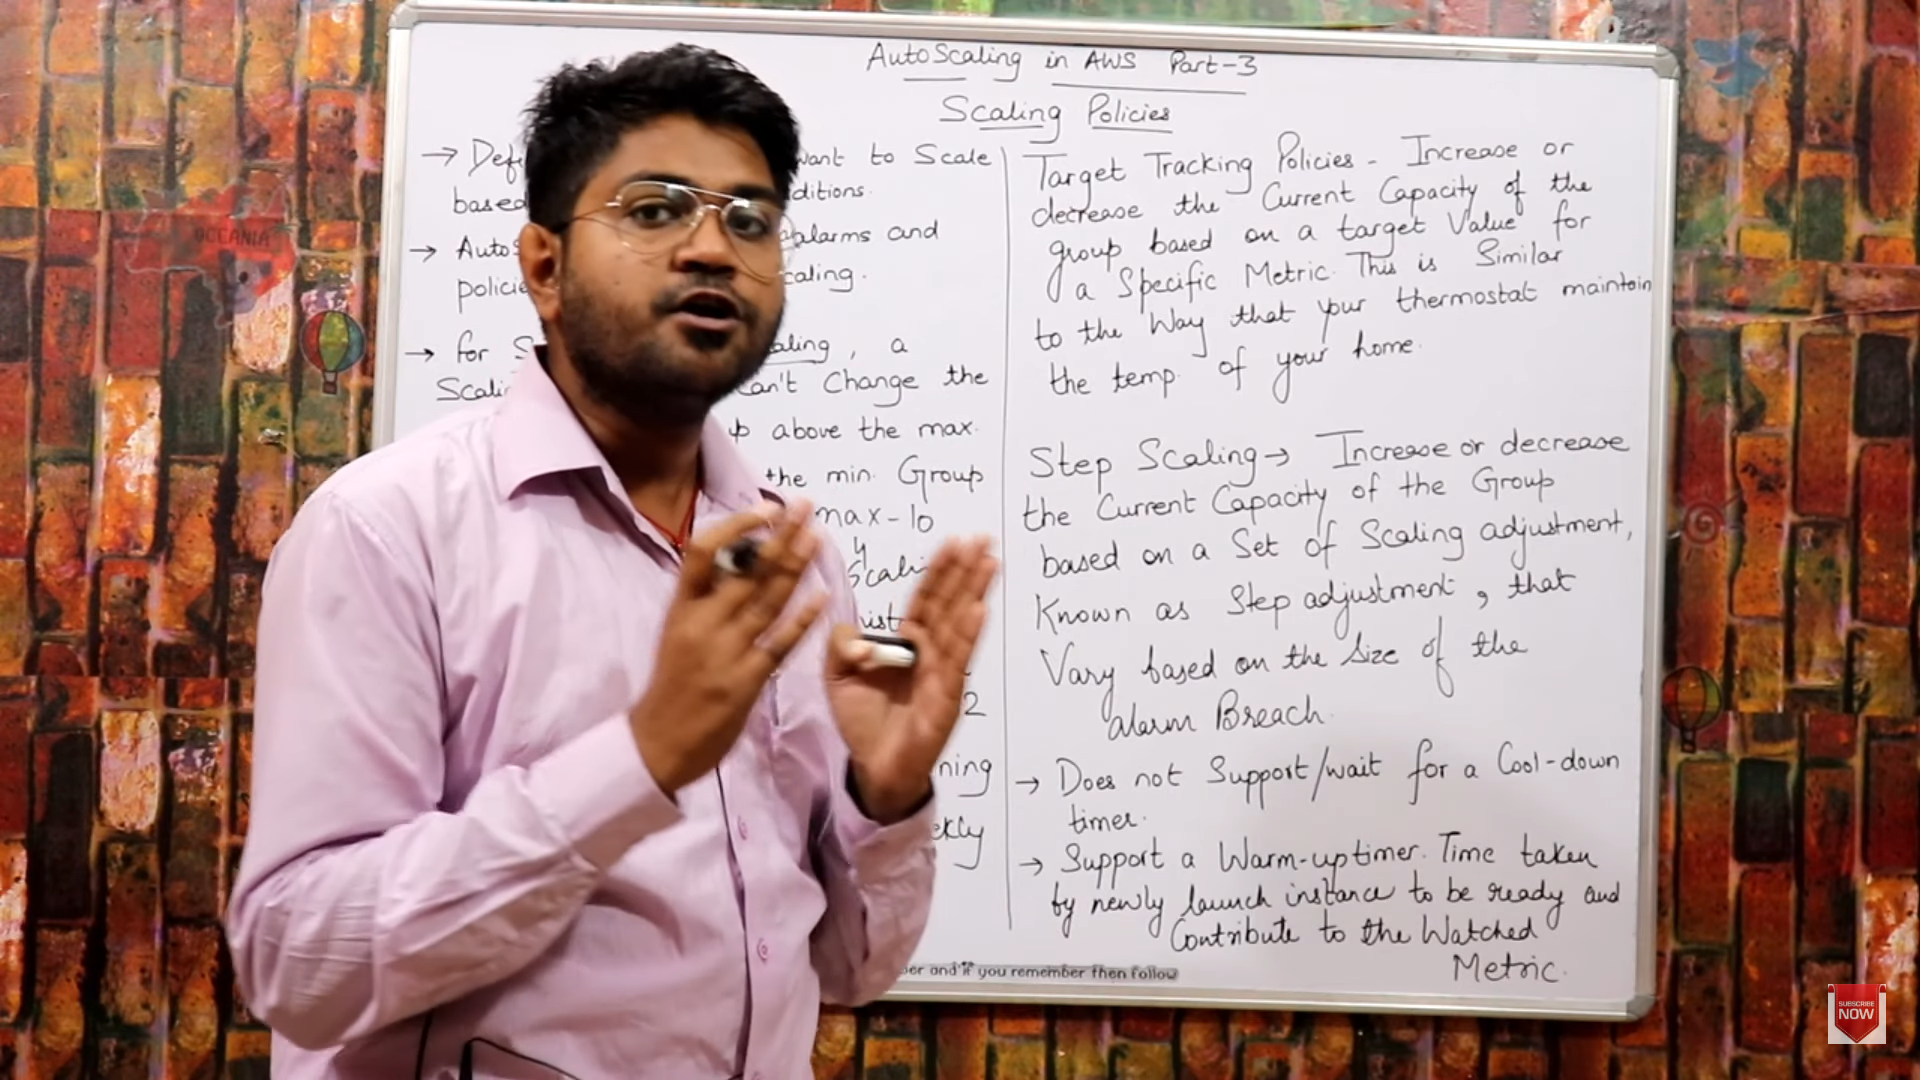 AutoScaling in AWS Part-3
Scaling Policies
→ Def want to Scale
based ditions.
→ Auto alarms and
policie caling.
→ for S aling, a
Scali can't Change the
above the max.
the min. Group
max-10
Scali
ist
2
ning
ekly
Target Tracking Policies - Increase or
decrease the Current Capacity of the
group based on a target Value for
a Specific Metric. This is Similar
to the Way that your thermostat maintain
the temp. of your home.
Step Scaling → Increase or decrease
the Current Capacity of the Group
based on a Set of Scaling adjustment,
Known as Step adjustment, that
Vary based on the Size of the
alarm Breach.
→ Does not Support/wait for a Cool-down
timer.
→ Support a Warm-up timer. Time taken
by newly launch instance to be ready and
Contribute to the Watched
Metric.
ber and if you remember then follow
OCEANIA
SUBSCRIBE
NOW